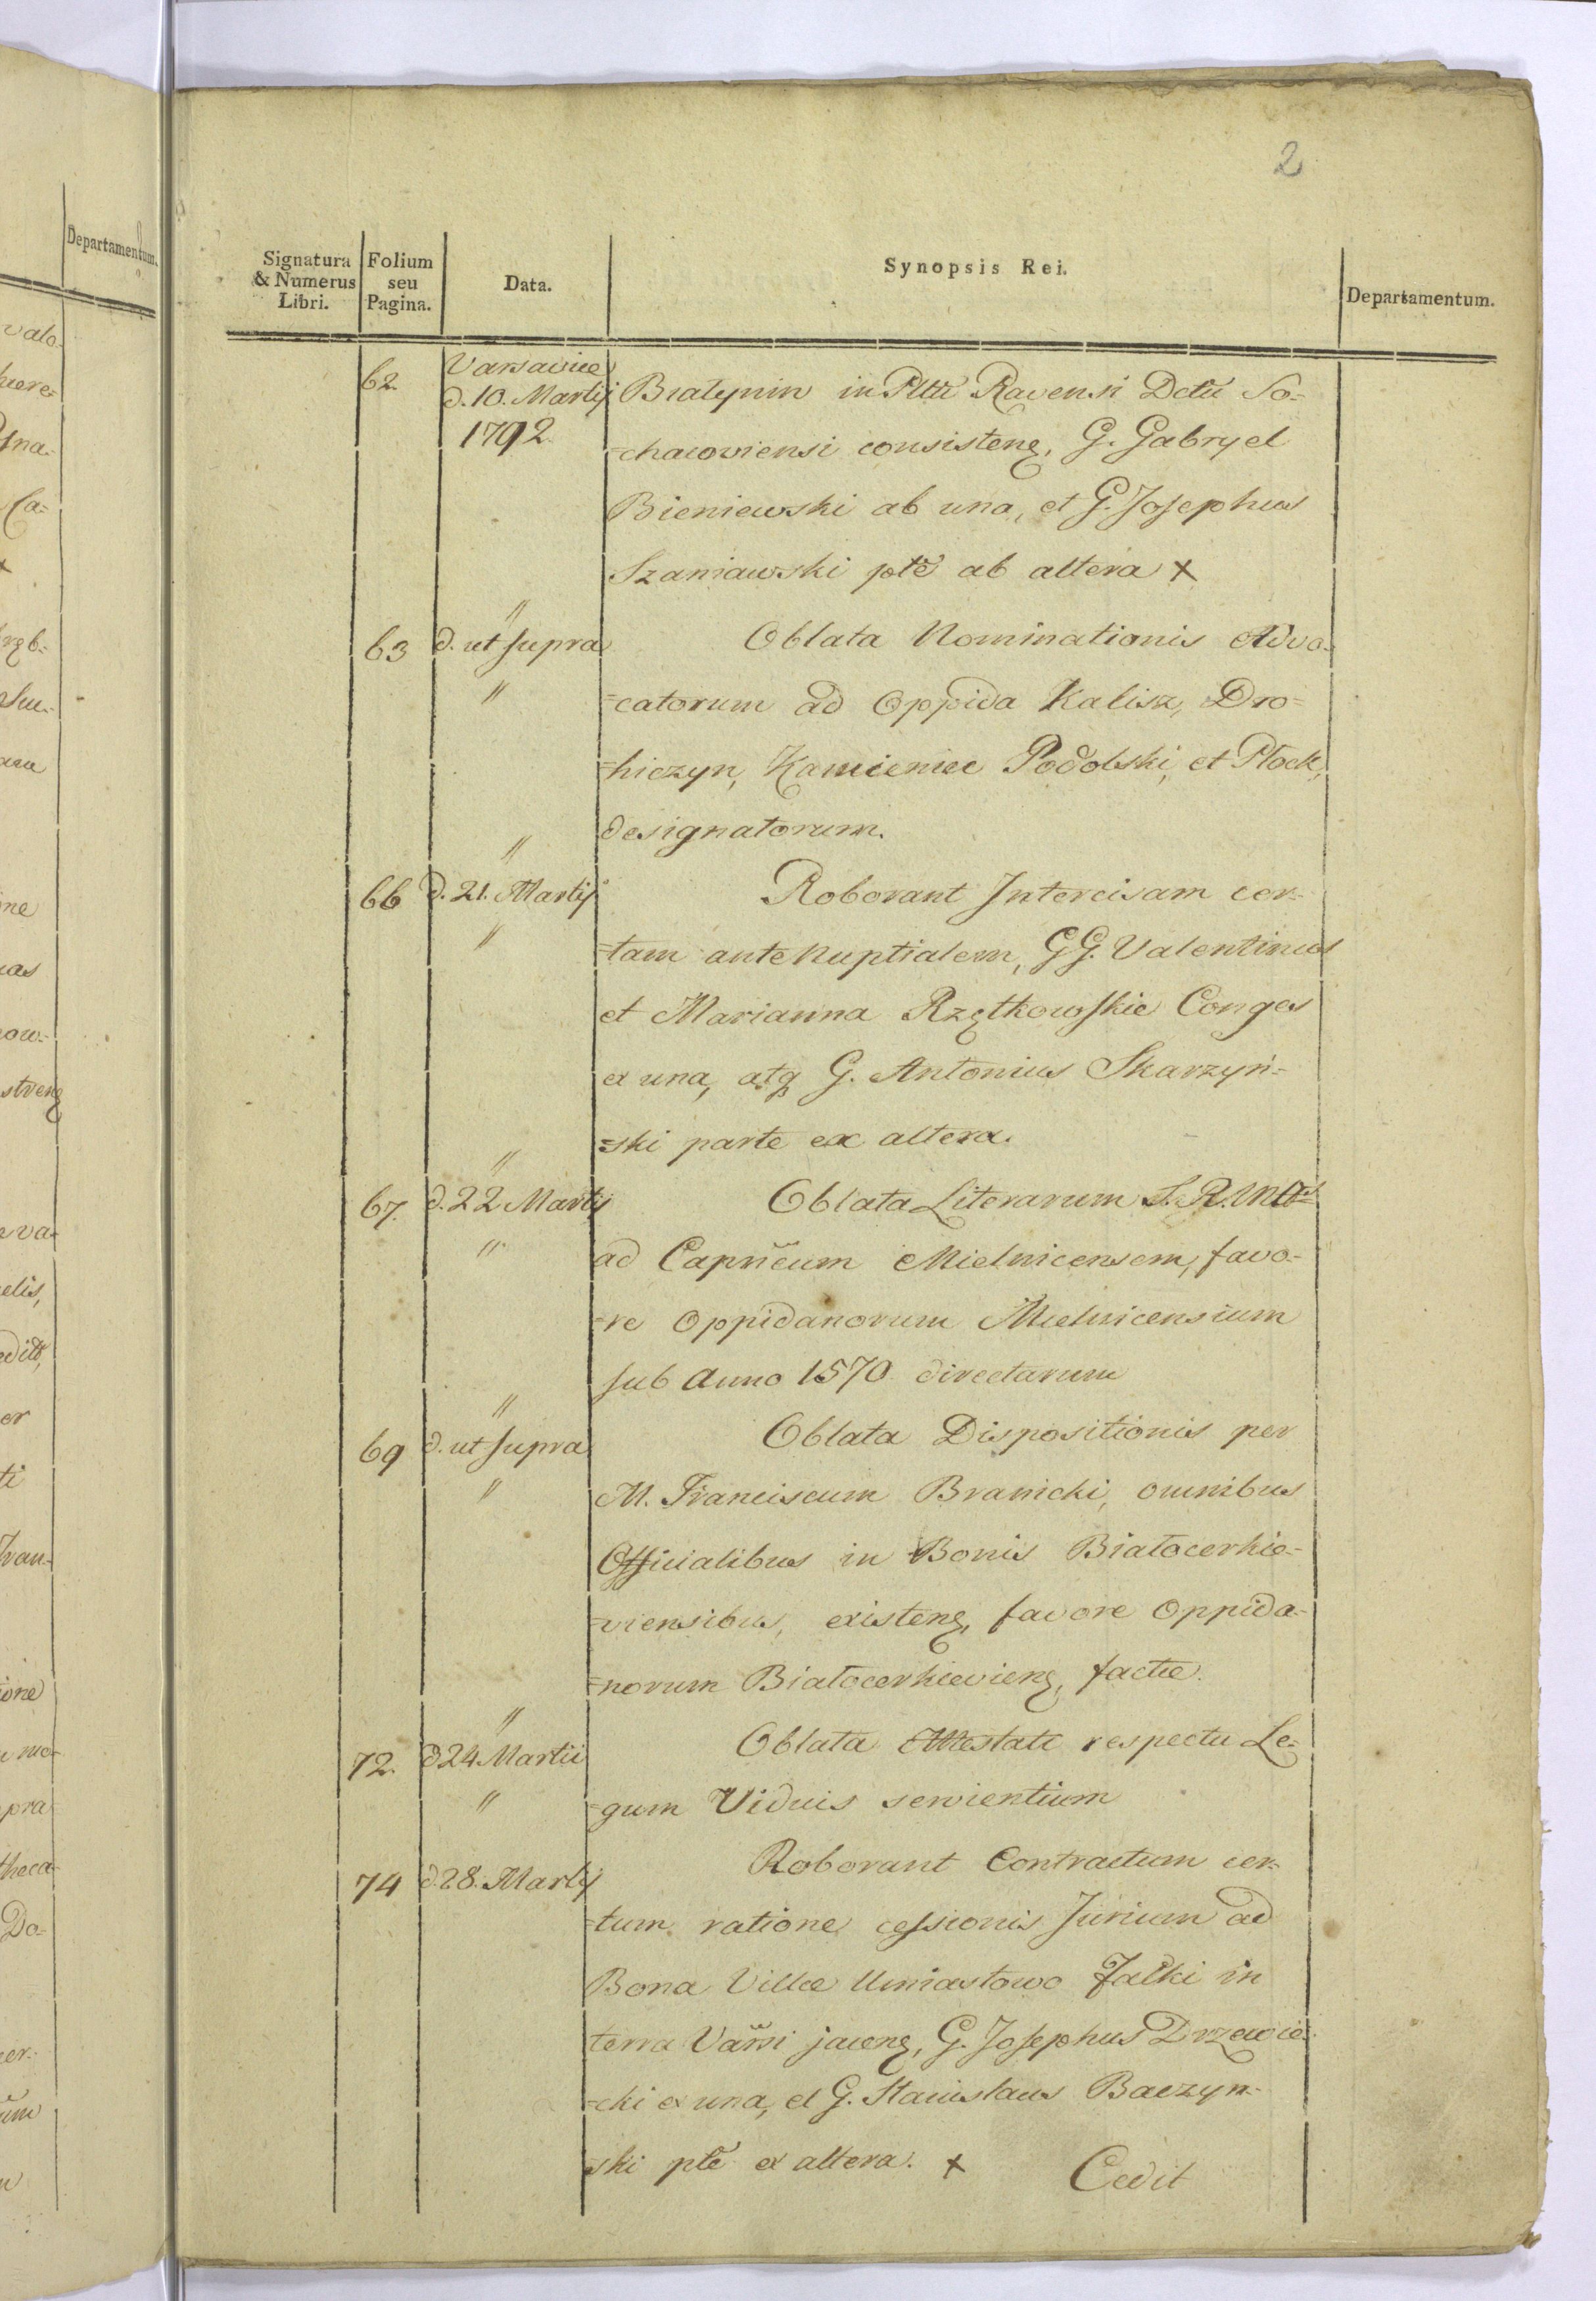 2
Signatura & Numerus Libri. Folium seu Pagina. Data. Synopsis Rei. Departamentum.
62. Varsaviae
d. 10. Martij Bratynin in Plttu Ravensi Dctu So-
1792 =chacoviensi consisten, G. Gabryel
Bieniewski ab una, et G. Josephus
Szaniawski pte ab altera x
"
63 d. ut supra Oblata Nominationis Advo-
" =catorum ad Oppida Kalisz, Dro=
=hiczyn, Kamieniec Podolski, et Płock,
designatorum.
"
66 d. 21. Martij Roborant Intercisam cer-
" =tam antenuptialem, GG. Valentinus
et Marianna Rzętkowskie Conges
ex una, atq G. Antonius Skarzyń=
=ski parte ex altera.
"
67. d. 22 Martij Oblata Literarum S. R. Mttis
" ad Capneum Mielnicensem, favo-
=re Oppidanorum Mielnicensium
sub Anno 1570 directarum
"
69 d. ut supra Oblata Dispositionis per
" M. Franciscum Branicki, omnibus
Officialibus in Bonis Białocerkie-
=viensibus, existen, favore Oppida-
=norum Białocerkievien, factae.
"
72. d 24 Martii Oblata Attestati respectu Le=
" =gum Viduis servientium
74 d. 28. Martij Roborant Contractum cer-
=tum ratione cessionis Jurium ad
Bona Villae Umiastowo Jałki in
terra Varsi jacen, G. Josephus Drzewie-
=cki ex una, et G. Stanislaus Baczyn-
ski pte ex altera. x Cedit
Departamentum.